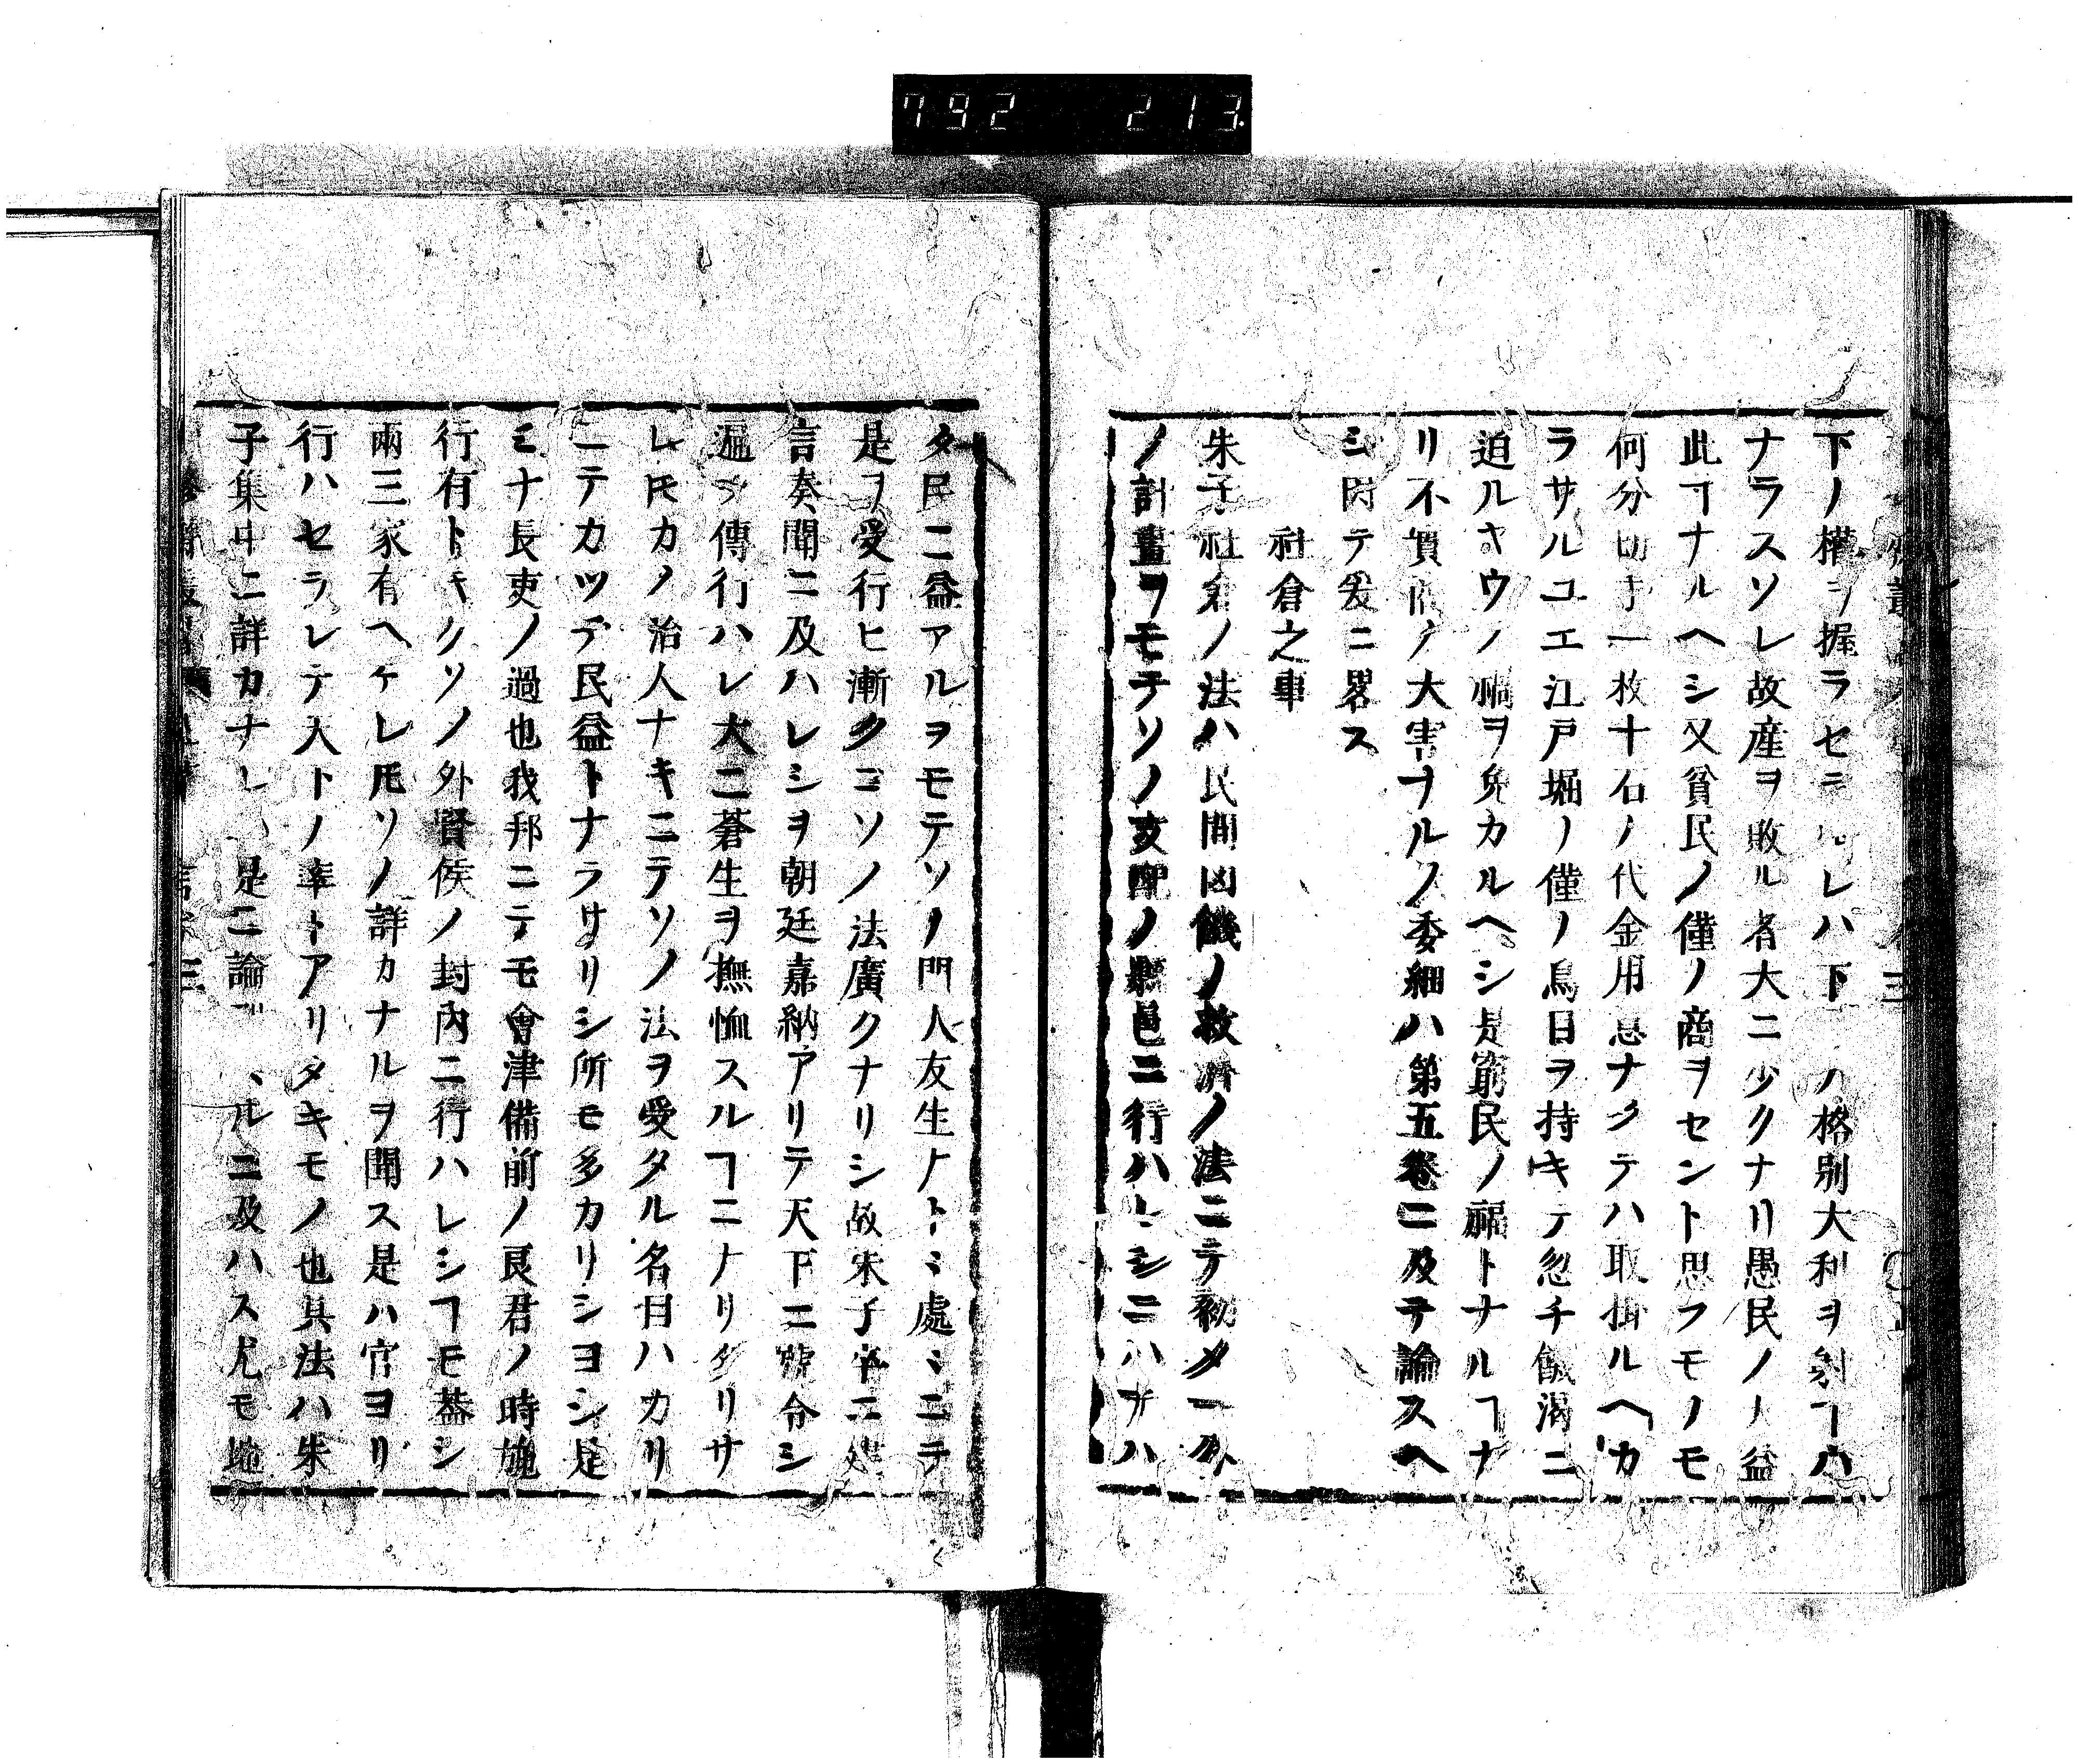 792 213
下ノ權ヲ握ラセ レハ下 ノ格別大利ヲ射ヿハ
ナラスソレ故産ヲ敗ル者大ニ少クナリ愚民ノ大益
此ヿナルヘシ又貧民ノ僅ノ商ヲセント思フモノモ
何分切手一枚十石ノ代金用意ナクテハ取掛ルヘカ
ラサルユエ江戸堀ノ僅ノ鳥目ヲ持キテ忽チ饑渴ニ
迫ルヤウノ禍ヲ免カルヘシ是窮民ノ福トナルヿナ
リ不實商ノ大害ヲルノ委細ハ第五卷ニ及テ論スヘ
シ因テ爰ニ畧ス
社倉之事
朱子社倉ノ法ハ民間凶饑ノ救濟ノ法ニテ初メ一分
ノ計畫ヲモテソノ支配ノ縣邑ニ行ハレシニハナハ
タ民ニ益アルヲモテソノ門人友生ナトミ處ミニテ
是ヲ受行ヒ漸クニソノ法廣クナリシ故朱子卒ニ建
言奏聞ニ及ハレシヲ朝廷嘉納アリテ天下ニ號令シ
遍ク傳行ハレ大ニ蒼生ヲ撫恤スルヿニナリタリサ
レ𪜈カノ治人ナキニテソノ法ヲ愛タル名目ハカリ
ニテカツテ民益トナラサリシ所モ多カリシヨシ是
ミナ長吏ノ過也我邦ニテモ會津備前ノ良君ノ時施
行有トキクソノ外賢侯ノ封內ニ行ハレシヿモ葢シ
兩三家有ヘケレ𪜈ソノ詳カナルヲ聞ス是ハ官ヨリ
行ハセラレテ大トノ幸トアリタキモノ也其法ハ朱
子集中ニ詳カナレ 是ニ論 ルニ及ハス尤モ地